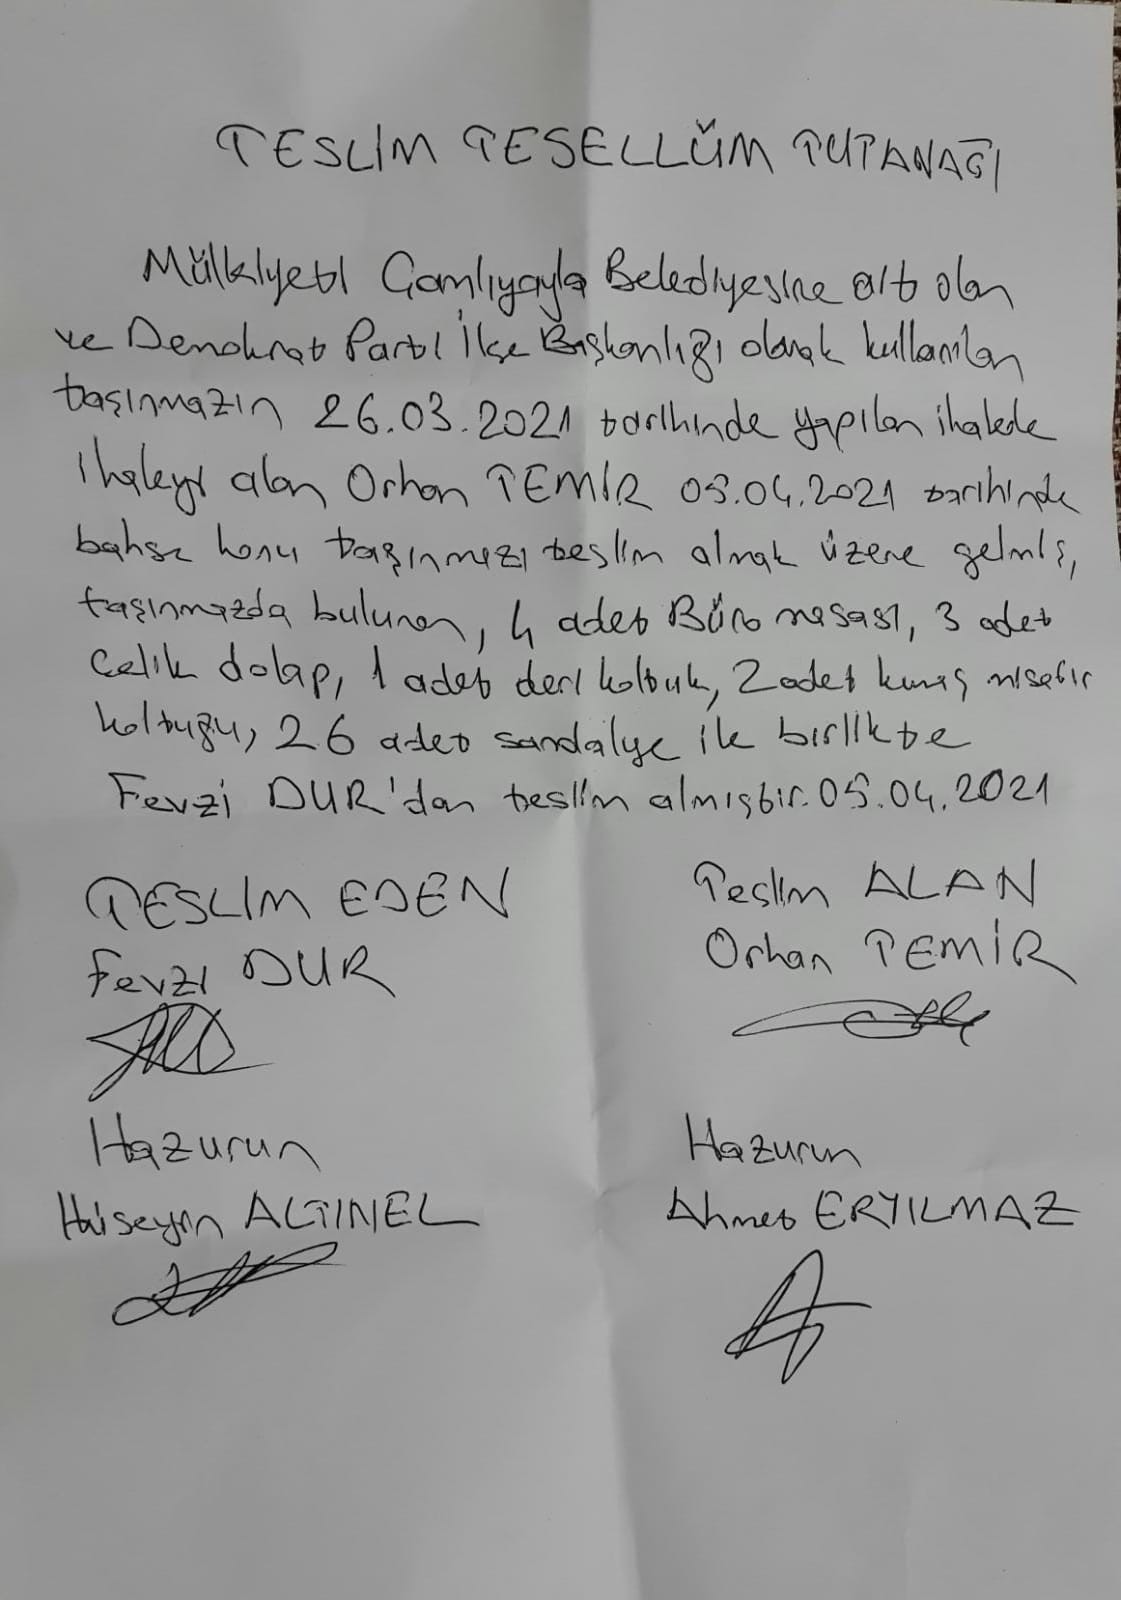 TESLİM TESELLÜM TUTANAĞI
Mülkiyeti Çamlıyayla Belediyesine ait olan
ve Demokrat Parti İlçe Başkanlığı olarak kullanılan
taşınmazın 26.03.2021 tarihinde yapılan ihalede
ihaleyi alan Orhan TEMİR 05.04.2021 tarihinde
bahse konu taşınmazı teslim almak üzere gelmiş,
taşınmazda bulunan, 4 adet Büro masası, 3 adet
Çelik dolap, 1 adet deri koltuk, 2 adet kumaş misafir
koltuğu, 26 adet sandalye ile birlikte
Fevzi DUR'dan teslim almıştır. 05.04.2021
TESLİM EDEN
Fevzi DUR
Teslim ALAN
Orhan TEMİR
Hazurun
Hüseyin ALTINEL
Hazurun
Ahmet ERYILMAZ